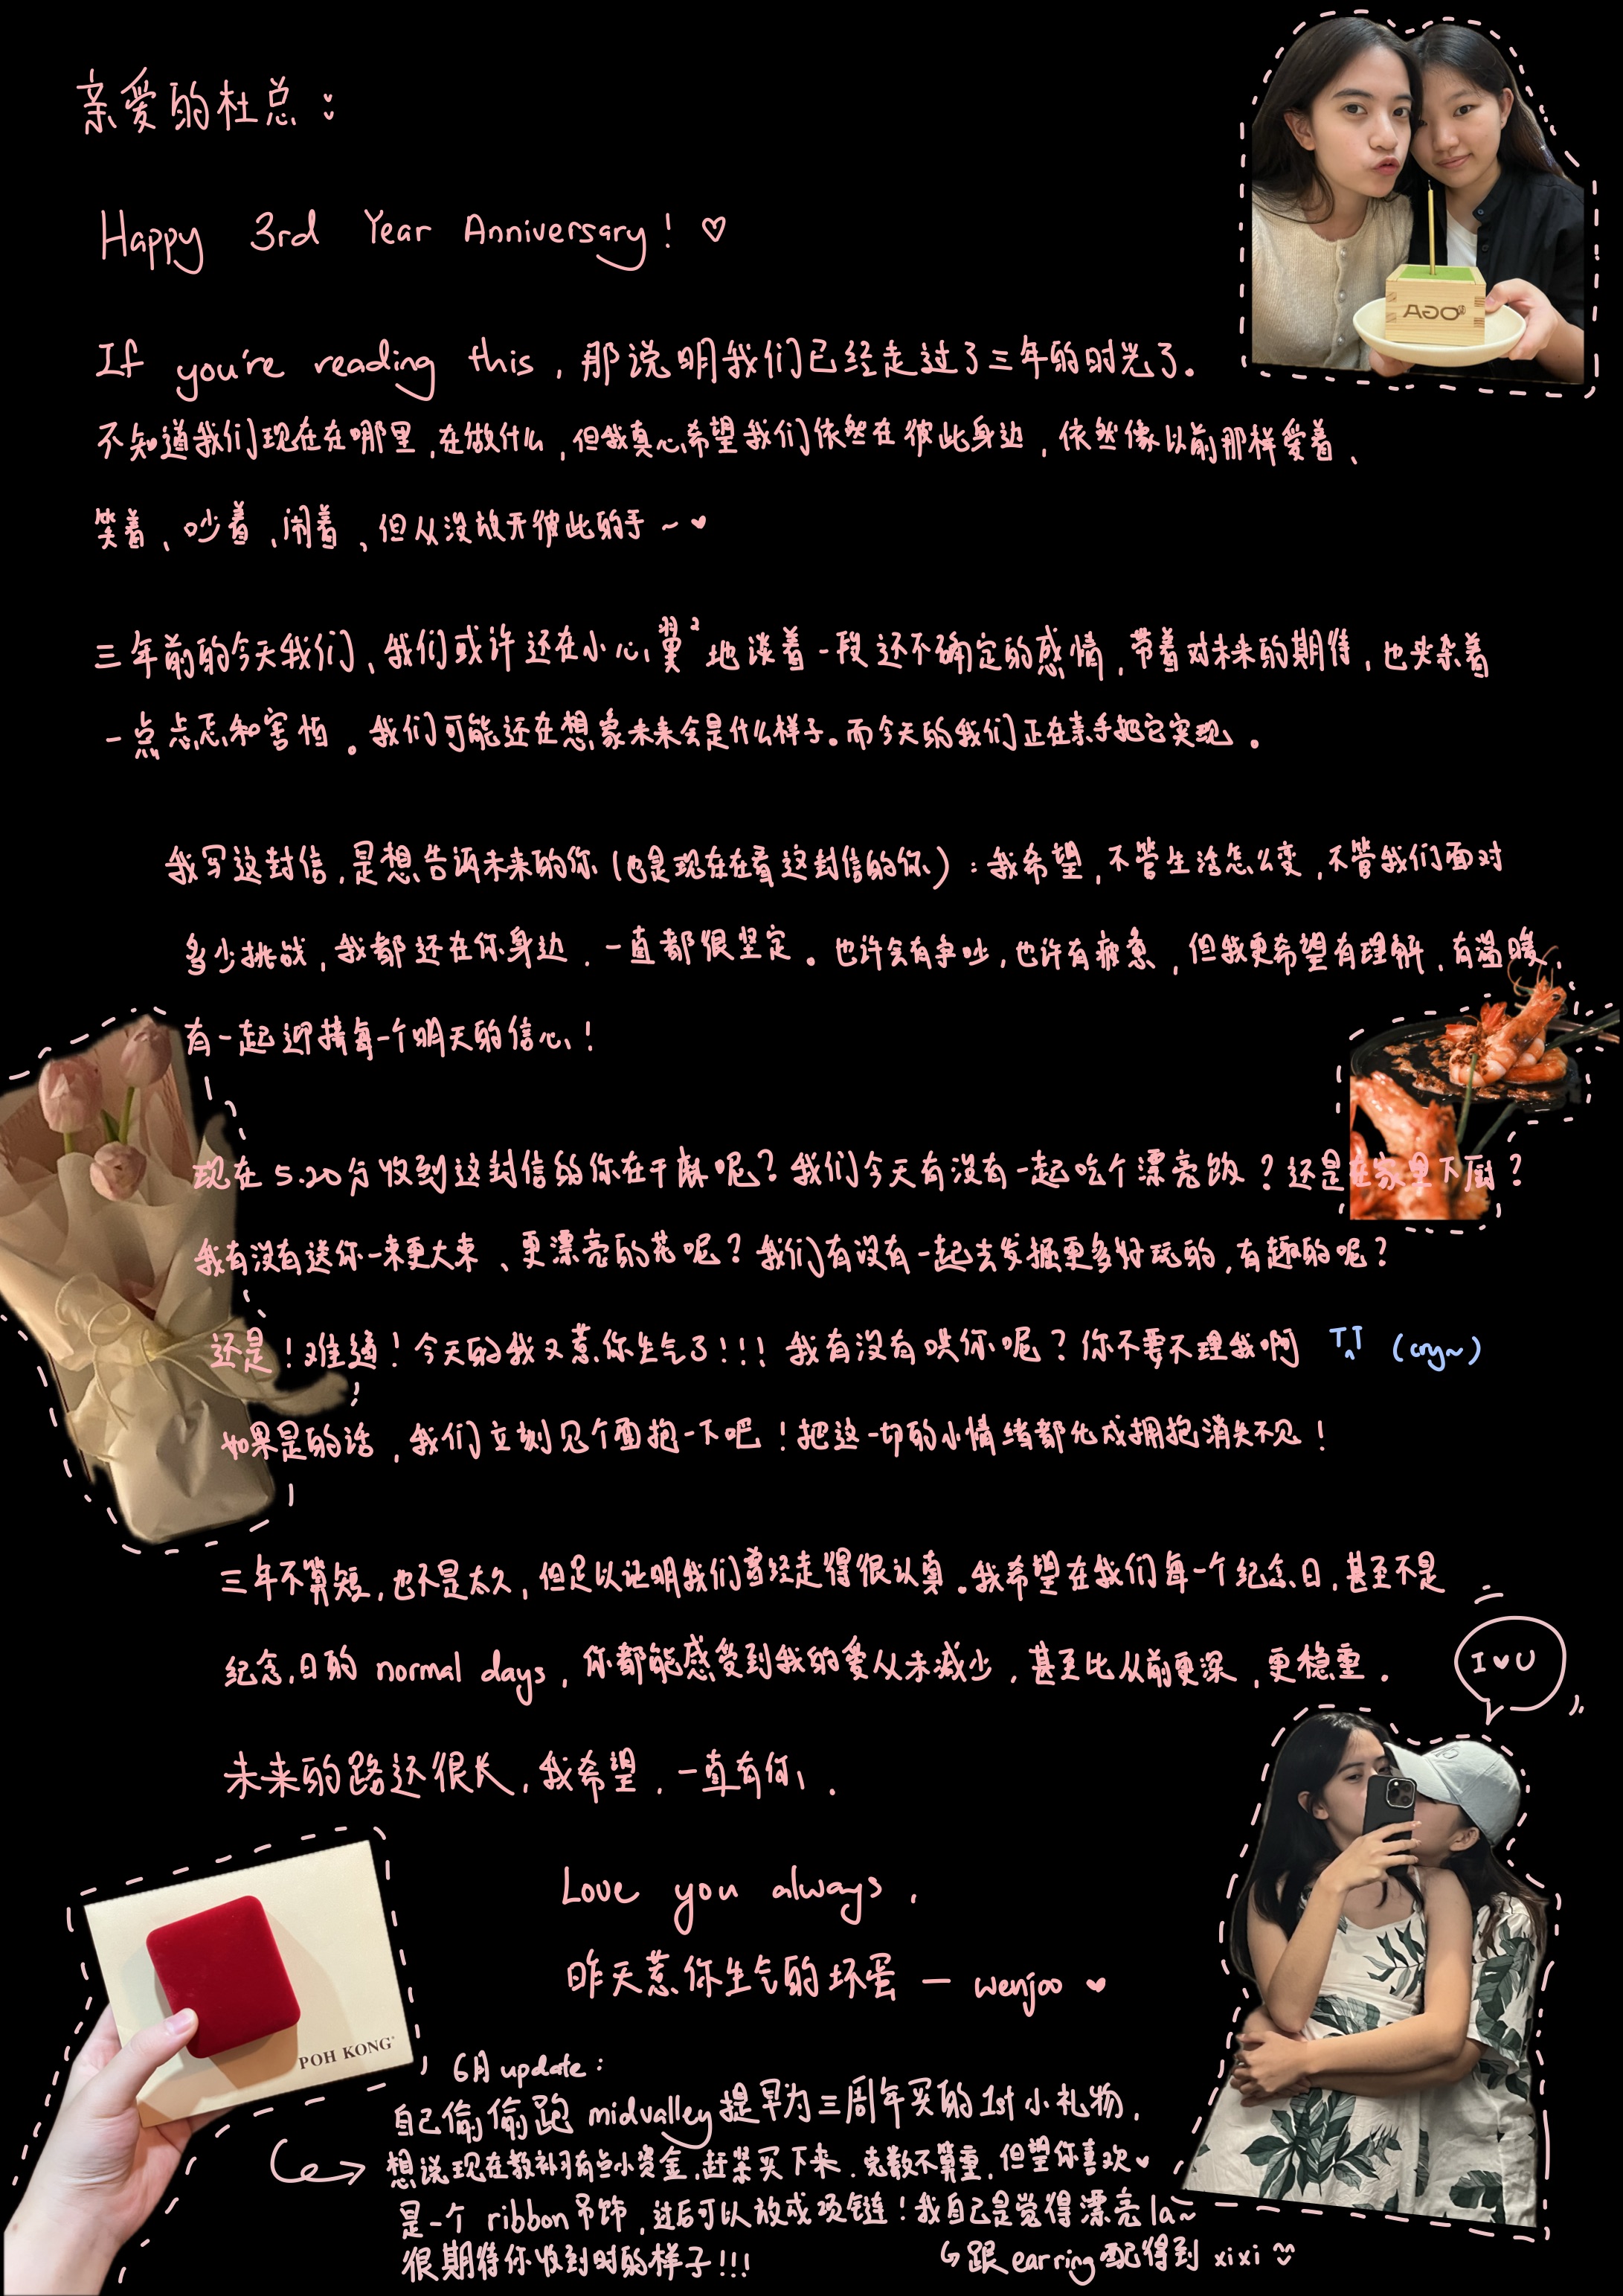 亲爱的杜总：
Happy 3rd Year Anniversary! ♡
If you're reading this，那说明我们已经走过了三年的时光了。
不知道我们现在在哪里，在做什么，但我真心希望我们依然在彼此身边，依然像以前那样爱着、
笑着、吵着、闹着、但从没放开彼此的手~♥
三年前的今天我们、我们或许还在小心翼²地谈着一段还不确定的感情，带着对未来的期待，也夹杂着
一点点忐和害怕。我们可能还在想象未来会是什么样子。而今天的我们正在亲手把它实现。
我写这封信，是想告诉未来的你（也是现在在看这封信的你）：我希望，不管生活怎么变，不管我们面对
多少挑战，我都还在你身边，一直都很坚定。也许会有争吵，也许有疲惫，但我更希望有理解，有温暖，
有一起迎接每一个明天的信心！
现在5.20分收到这封信的你在干嘛呢？我们今天有没有一起吃个漂亮饭？还是在家里下厨？
我有没有送你一束更大束、更漂亮的花呢？我们有没有一起去发掘更多好玩的，有趣的呢？
还是！难道！今天的我又惹你生气了!!! 我有没有哄你呢？你不要不理我啊 T^T (cry~)
如果是的话，我们立刻见个面抱一下吧！把这一切的小情绪都化成拥抱消失不见！
三年不算短，也不是太久，但足以证明我们曾经走得很认真。我希望在我们每一个纪念日，甚至不是
纪念日的 normal days，你都能感受到我的爱从未减少，甚至比从前更深，更稳重。
I ♥ U
未来的路还很长，我希望，一直有你。
Love you always,
昨天惹你生气的坏蛋 — wenjoo ♥
POH KONG
6月 update：
自己偷偷跑 midvalley 提早为三周年买的 1st 小礼物，
想说现在教补习有点小资金，赶紧买下来，克数不算重，但望你喜欢♥
是一个 ribbon 吊饰，过后可以放成项链！我自己是觉得漂亮 la~
很期待你收到时的样子!!!
↳跟 earring 配得到 xixi
OGA